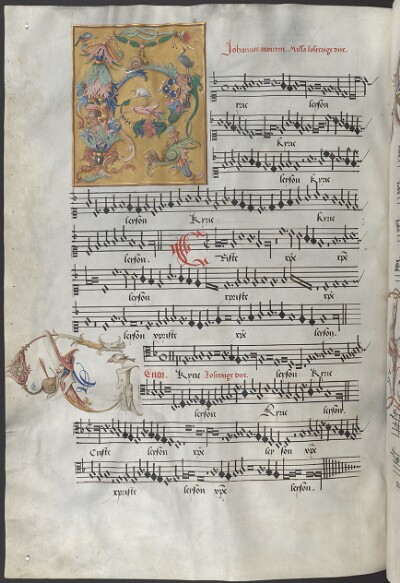 Johannes mouton. Missa loserauge dire.
rie leyson
Kyrie
leyson Kyrie
leyson Kyrie Kyrie
leyson. Criste xp̄e xp̄e
leyson xpriste xp̄e
leyson xpriste xp̄e leyson.
Tenor. Kyrie loserauge dire. leyson Kyrie
leyson Kyrie leyson
Criste leyson xp̄e ley son xp̄e
xpriste leyson xp̄e leyson.